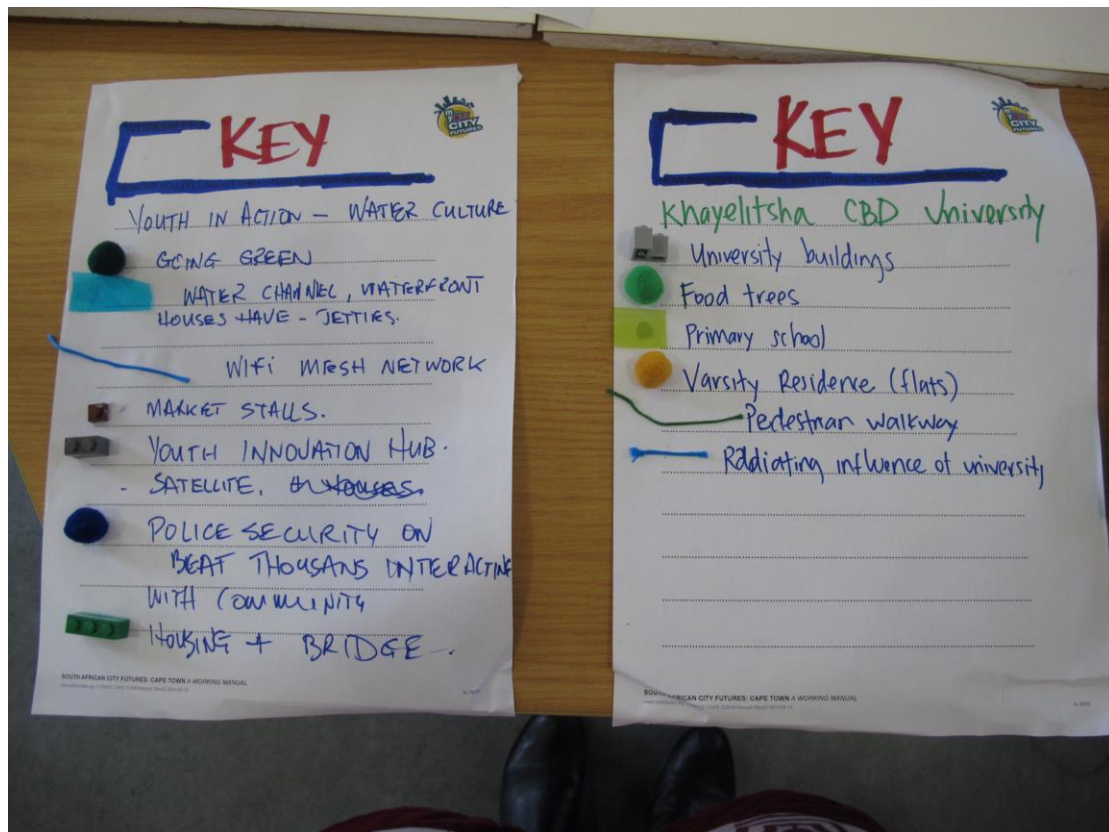 KEY
MY CITY FUTURES
YOUTH IN ACTION – WATER CULTURE
GOING GREEN
WATER CHANNEL, WATERFRONT
HOUSES HAVE - JETTIES.
WIFI MESH NETWORK
MARKET STALLS.
YOUTH INNOVATION HUB.
- SATELLITE.
POLICE SECURITY ON
BEAT THOUSANS INTERACTING
WITH COMMUNITY
HOUSING + BRIDGE -.
SOUTH AFRICAN CITY FUTURES: CAPE TOWN A WORKING MANUAL
KEY
CITY FUTURES
Khayelitsha CBD University
University buildings
Food trees
Primary school
Varsity Residence (flats)
Pedestrian walkway
Radiating influence of university
SOUTH AFRICAN CITY FUTURES: CAPE TOWN A WORKING MANUAL